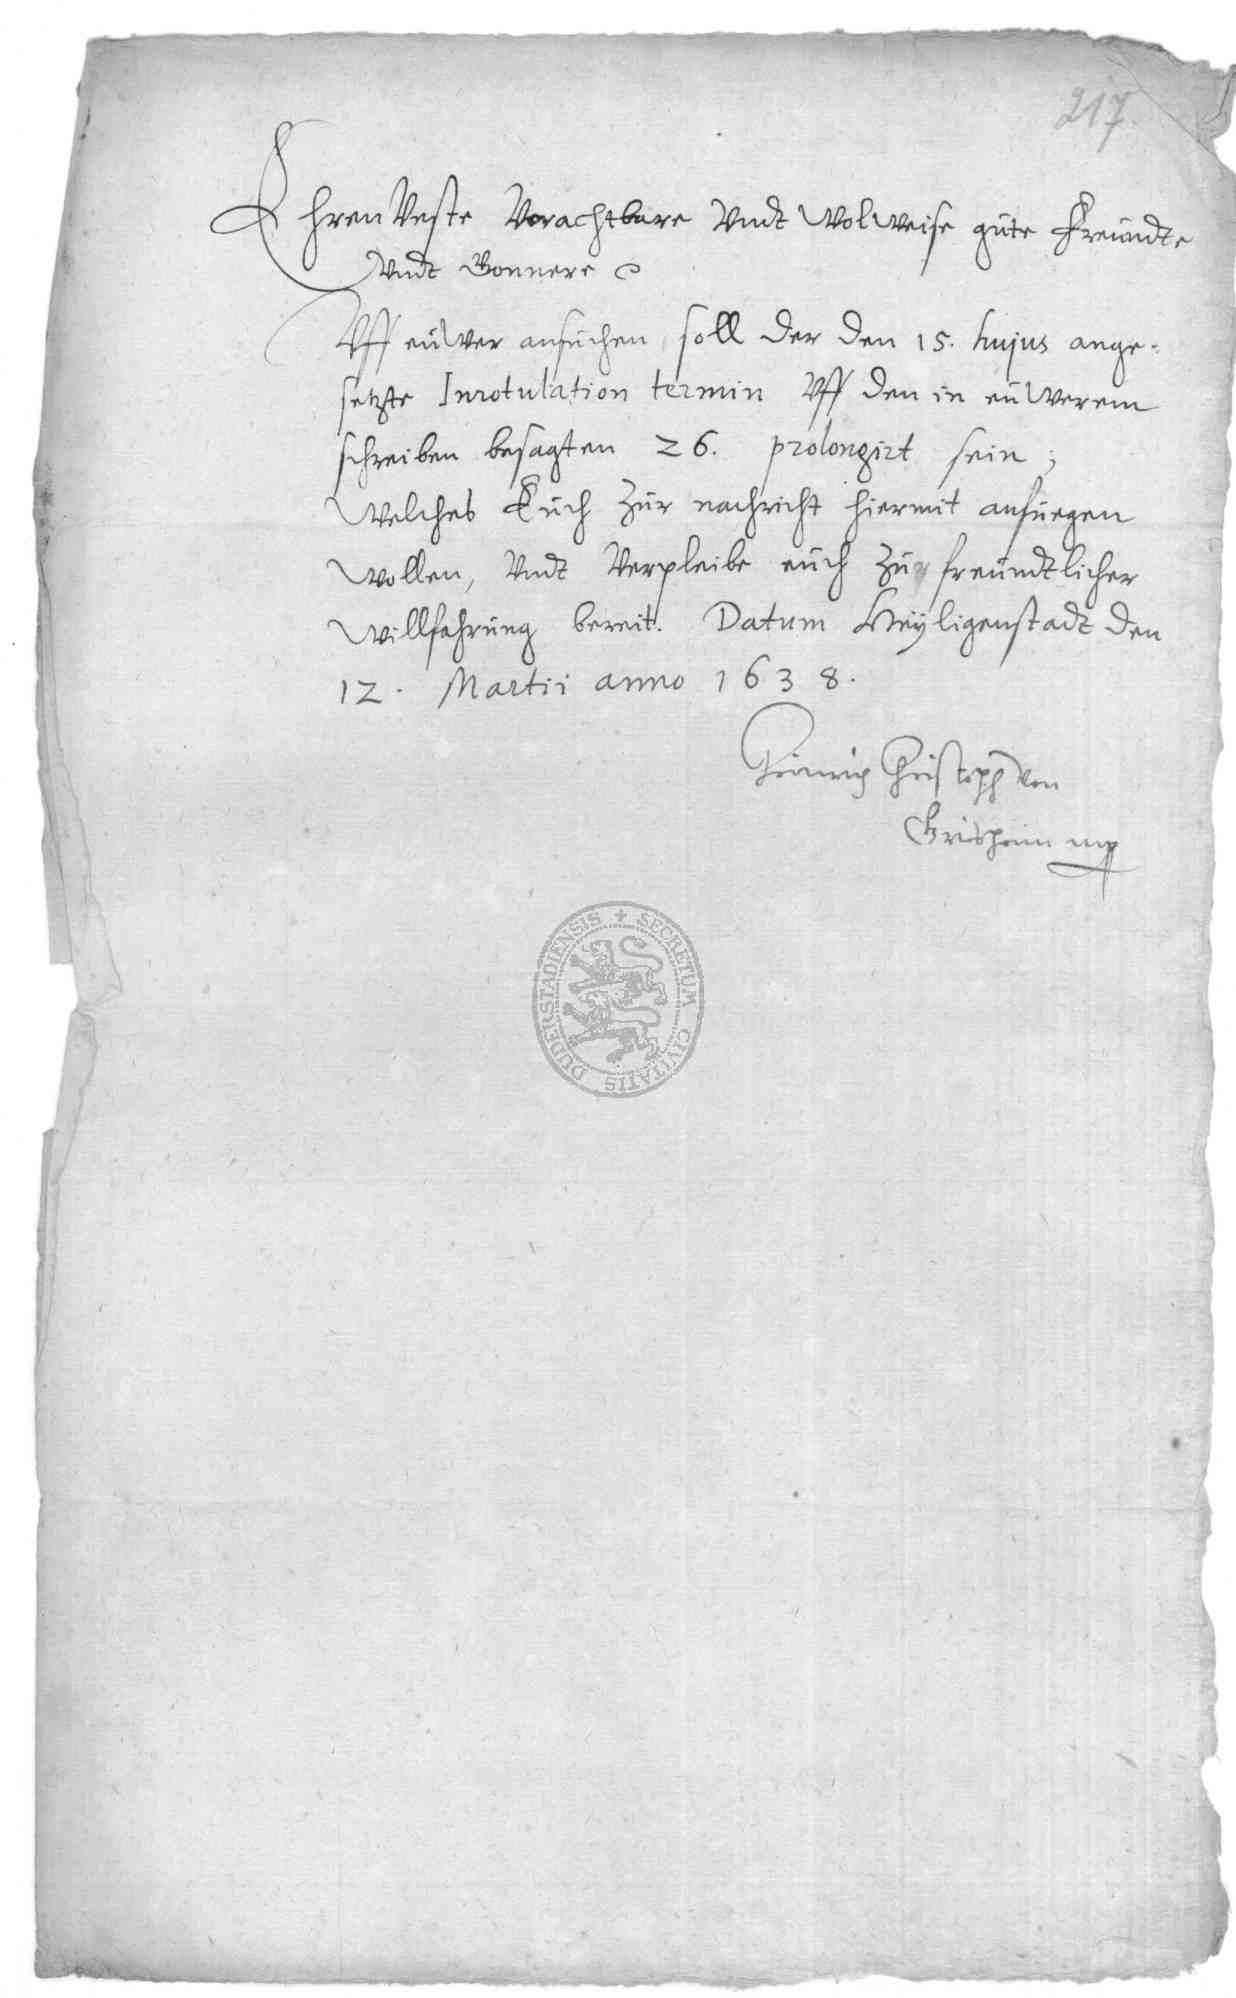 217.
EhrenVeste Vorachtbare Vndt Wolweise gute Freundte
Vndt Gonnere
Vff euwer ansuchen, soll der den 15. hujus ange-
setzte Inrotulation termin Vff den in euwerem
schreiben besagten 26. prolongirt sein;
Welches Euch zur nachricht hiermit anfuegen
wollen, Vndt Verpleibe euch zur freundtlicher
willfahrung bereit. Datum Heÿligenstadt den
12. Martii anno 1638.
Heinrich Christoph von
Griesheim mp
SECRETUM CIVITATIS DUDERSTADIENSIS +